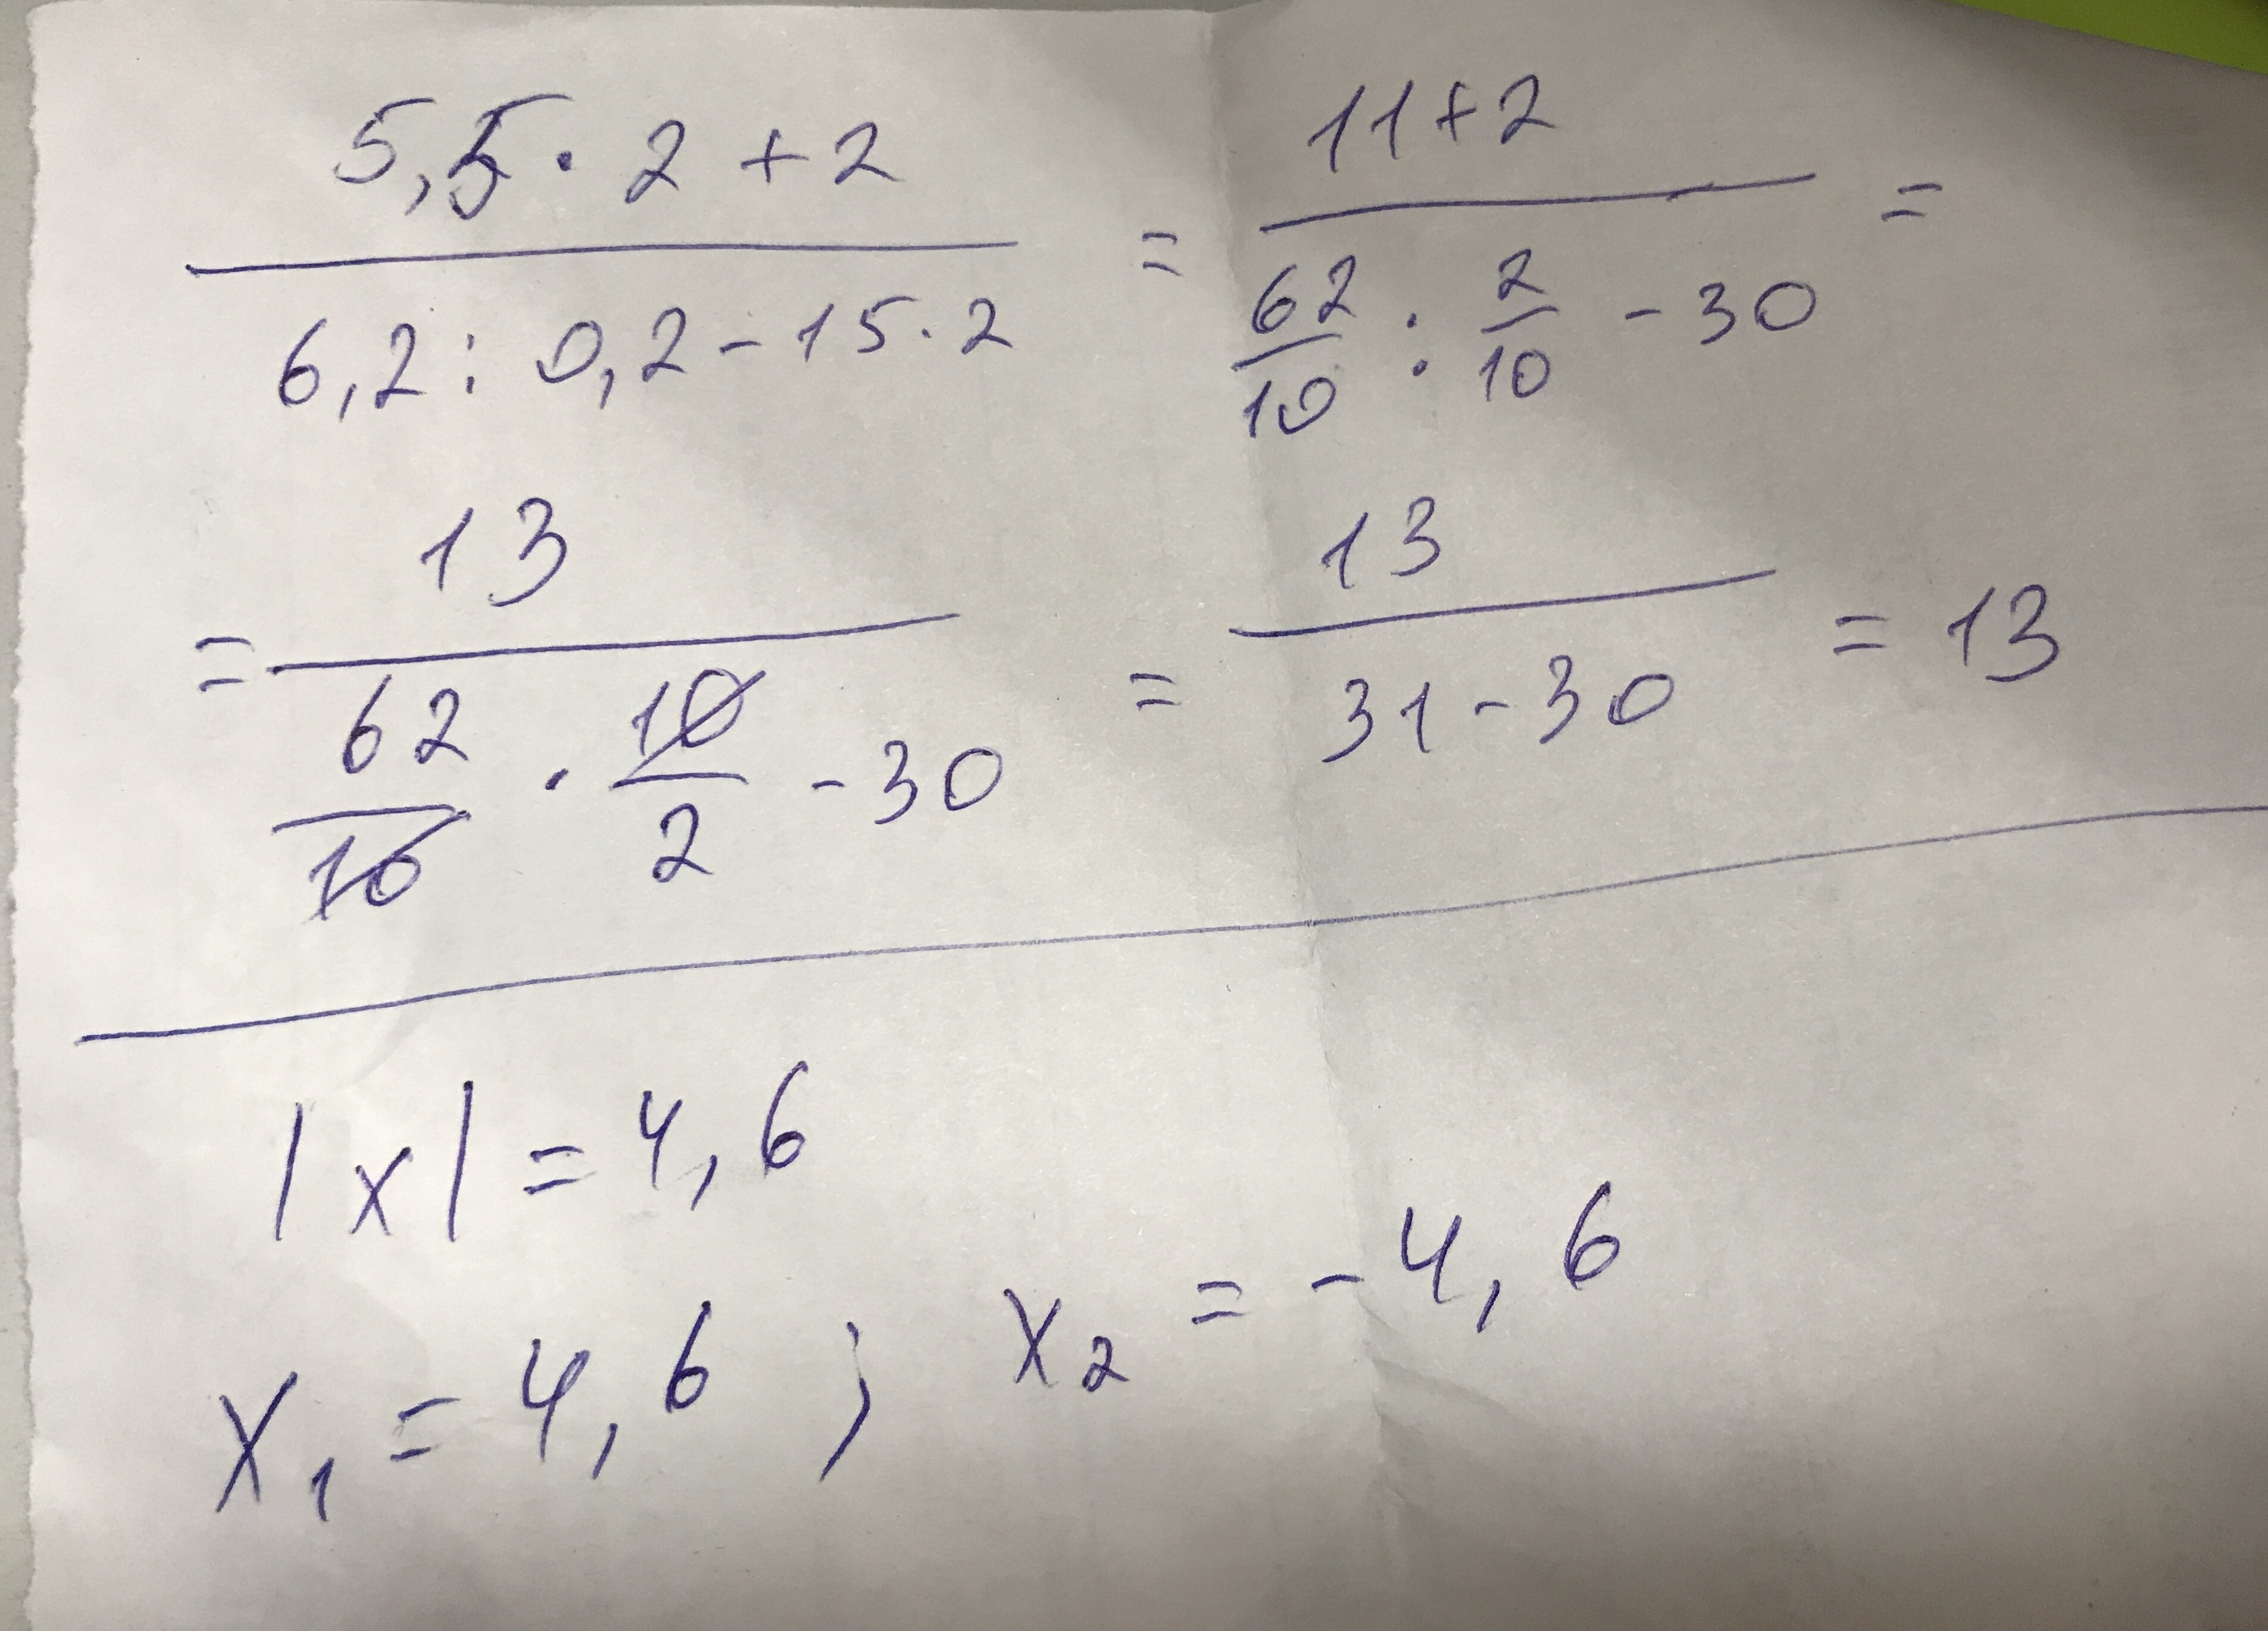 5,5 · 2 + 2 / 6,2 : 0,2 - 15 · 2 = 11 + 2 / 62/10 : 2/10 - 30 =
= 13 / 62/10 · 10/2 - 30 = 13 / 31 - 30 = 13
|x| = 4,6
x₁ = 4,6 ; x₂ = -4,6